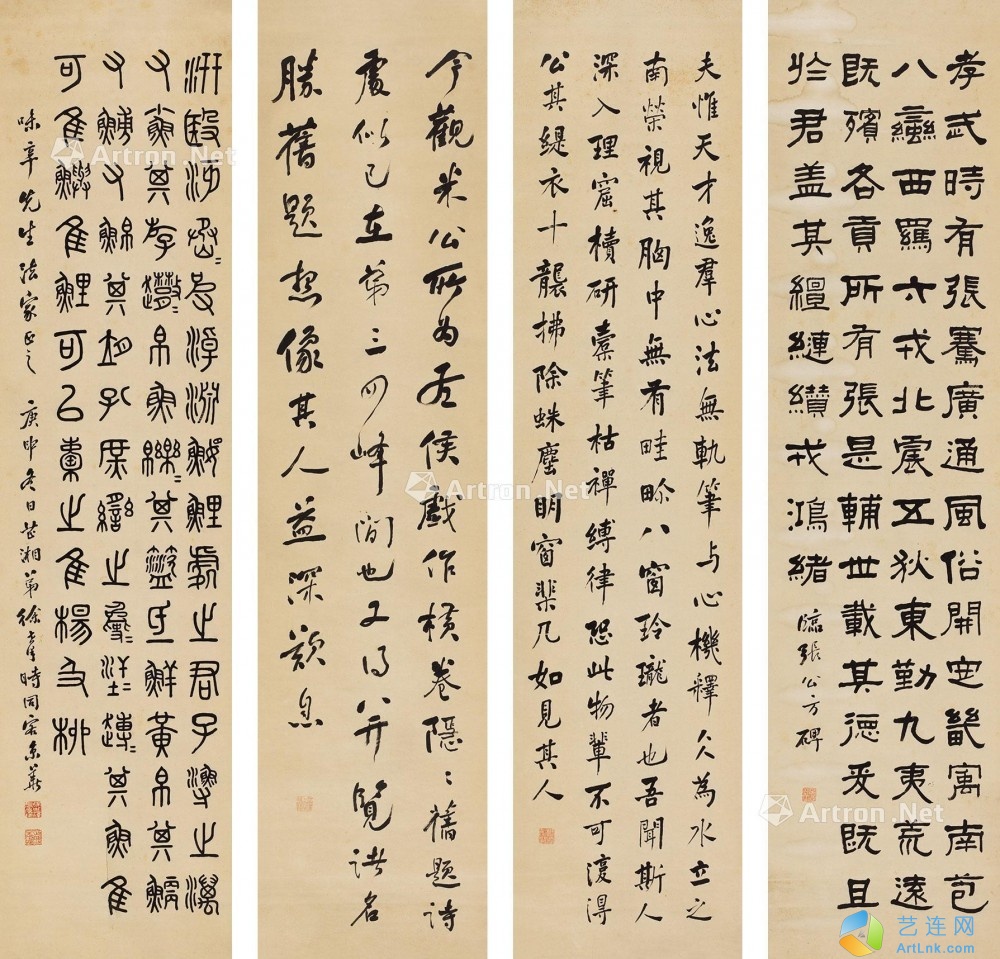 孝武時有張騫廣通風俗開定畿寓南苞
八蠻西羈六戎北震五狄東勤九夷荒遠
既殯各貢所有張是輔世載其德爰既且
於君盖其繵縺纘戎鴻緒
臨張公方碑
夫惟天才逸羣心法無軌筆与心機釋仌為水立之
南榮視其胸中無有畦畛八窗玲瓏者也吾聞斯人
深入理窟櫝研囊筆枯禪縛律恐此物輩不可復得
公其緹衣十襲拂除蛛塵明窗棐几如見其人
今觀米公所为左侯戲作橫卷隱〻舊題詩
處似已在第三四峰間也又得以并覽諸名
勝舊題想像其人益深歎息
汧殹沔〻淖淵鰋鯉處之君子漁之澫
又魚其斿〻帛魚皪〻其氐鮮黃帛其鯿
又又鮊其孔庶臠之〻〻〻其魚隹
可隹鱮隹鯉可以橐之隹楊及柳
味辛先生法家正之
庚申冬日芷湘弟徐時同客京華
Artron.Net
Artron.Net
Artron.Net
Artron.Net
艺连网
ArtLnk.com